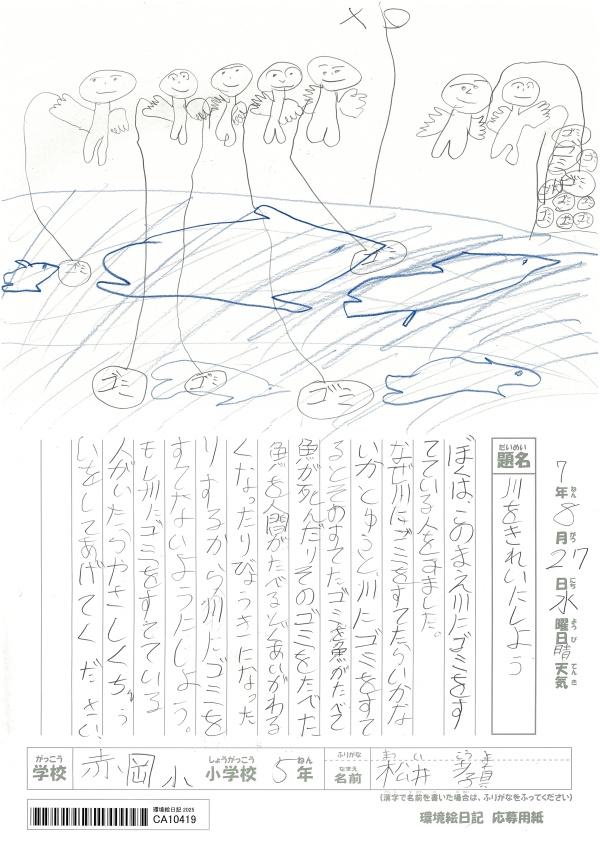 ゴミ
ゴミ
ゴミ
ゴミ
ゴミ
ゴミ
ゴミ
ゴミ
ゴミ
ゴミ
ゴミ
7年ねん8月がつ27日にち水曜日ようび晴天気てんき
題名だいめい
川をきれいにしよう
ぼくは、このまえ川にゴミをす
てている人をみました。
なぜ川にゴミをすてたらいかな
いかとゆうと川にゴミをすて
るとそのすてたゴミを魚がたべて
魚が死んだりそのゴミをたべた
魚を人間がたべるとぐあいがわる
くなったりびょうきになった
りするから川にゴミを
すてないようにしよう。
もし川にゴミをすてている
人がいたらやさしくちゅう
いをしてあげてください
学校がっこう 赤岡小 小学校しょうがっこう 5年ねん
ふりがな まつい
名前なまえ 松井
(漢字で名前を書いた場合は、ふりがなをふってください)
環境絵日記 2025
CA10419
環境絵日記 応募用紙